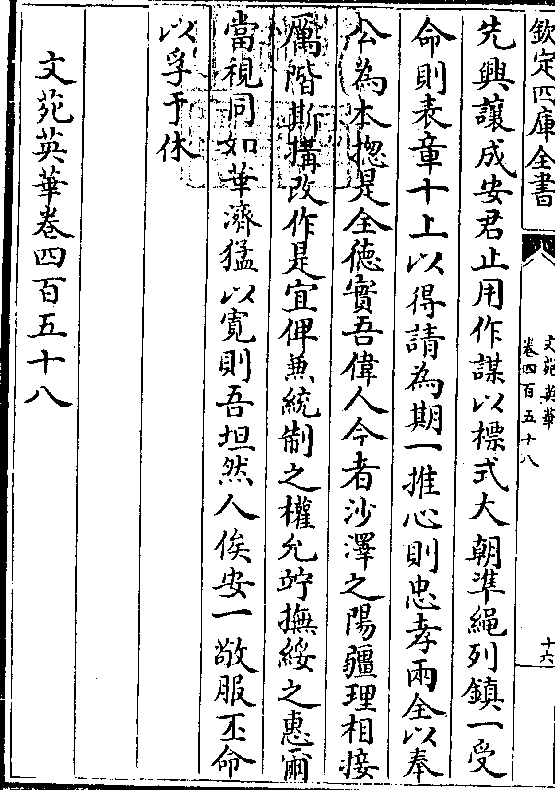 欽定四庫全書
文苑英華
卷四百五十八
十六
先興讓成安君止用作謀以標式大朝準繩列鎮一受
命則表章十上以得請為期一推心則忠孝兩全以奉
公為本揔是全徳實吾偉人今者沙澤之陽疆理相接
厲階斯搆改作是宜俾兼統制之權允竚撫綏之惠爾
當視同如華濟猛以寛則吾坦然人俟安一敬服丕命
以孚于休
文苑英華卷四百五十八